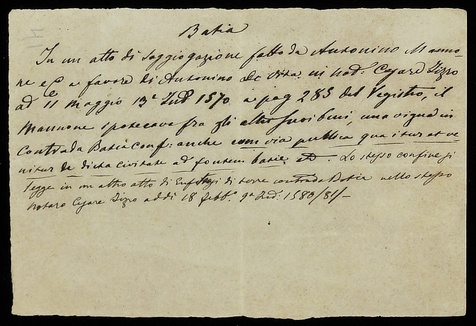 Batia
In un atto di Soggiogazione fatto da Antonino Manno-
ne e a favore di Antonino De Vita in not. Cesare Zizzo
ad 11 Maggio 13ª Ind. 1570 a pag 283 del Registro, il
Mannone ipotecava fra gli altri suoi beni, una vigna in
Contrada Batia conf: anche con via publica qua itur et ve
nitur de dicta civitate ad fontem batie. Lo stesso confine si
legge in un altro atto di di terre contrada Batia nello stesso
notaro Cesare Zizzo ad di 18 febb. 9ª Ind. 1580/81/-